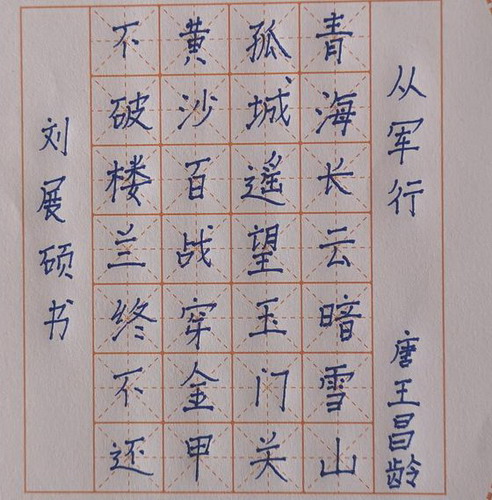 从军行
唐王昌龄
青海长云暗雪山
孤城遥望玉门关
黄沙百战穿金甲
不破楼兰终不还
刘展硕书